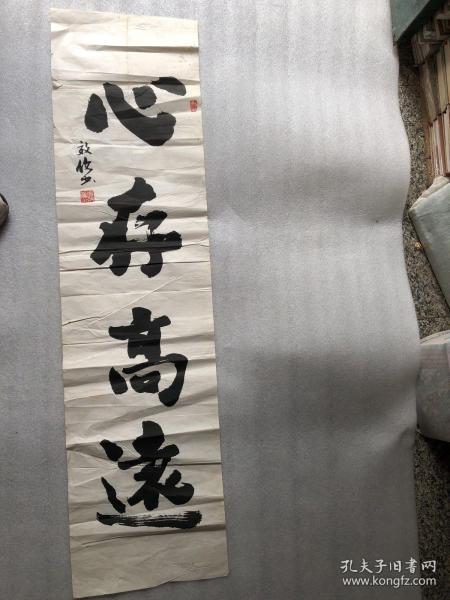 心存高遠
孔夫子旧书网
www.kongfz.com